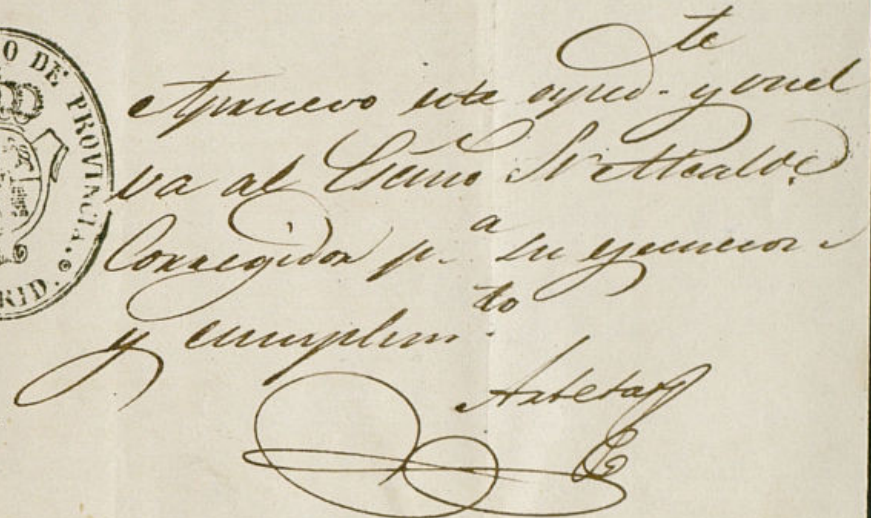 O DE PROVINCIA.
RID.
Apruevo este exped.te y vuel
va al Escmo Sr Alcalde
Corregidor p.a su ejecucion
y cumplim.to
Arteta